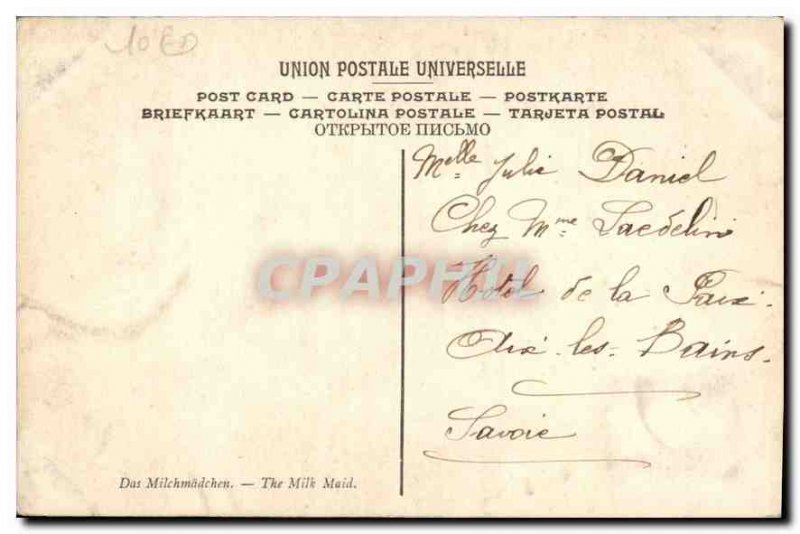 10 ED
UNION POSTALE UNIVERSELLE
POST CARD — CARTE POSTALE — POSTKARTE
BRIEFKAART — CARTOLINA POSTALE — TARJETA POSTAL
ОТКРЫТОЕ ПИСЬМО
Melle Julie Daniel
Chez Mme
Hotel de la Paix.
Aix-les-Bains.
Savoie
CPARHI
Das Milchmädchen. — The Milk Maid.